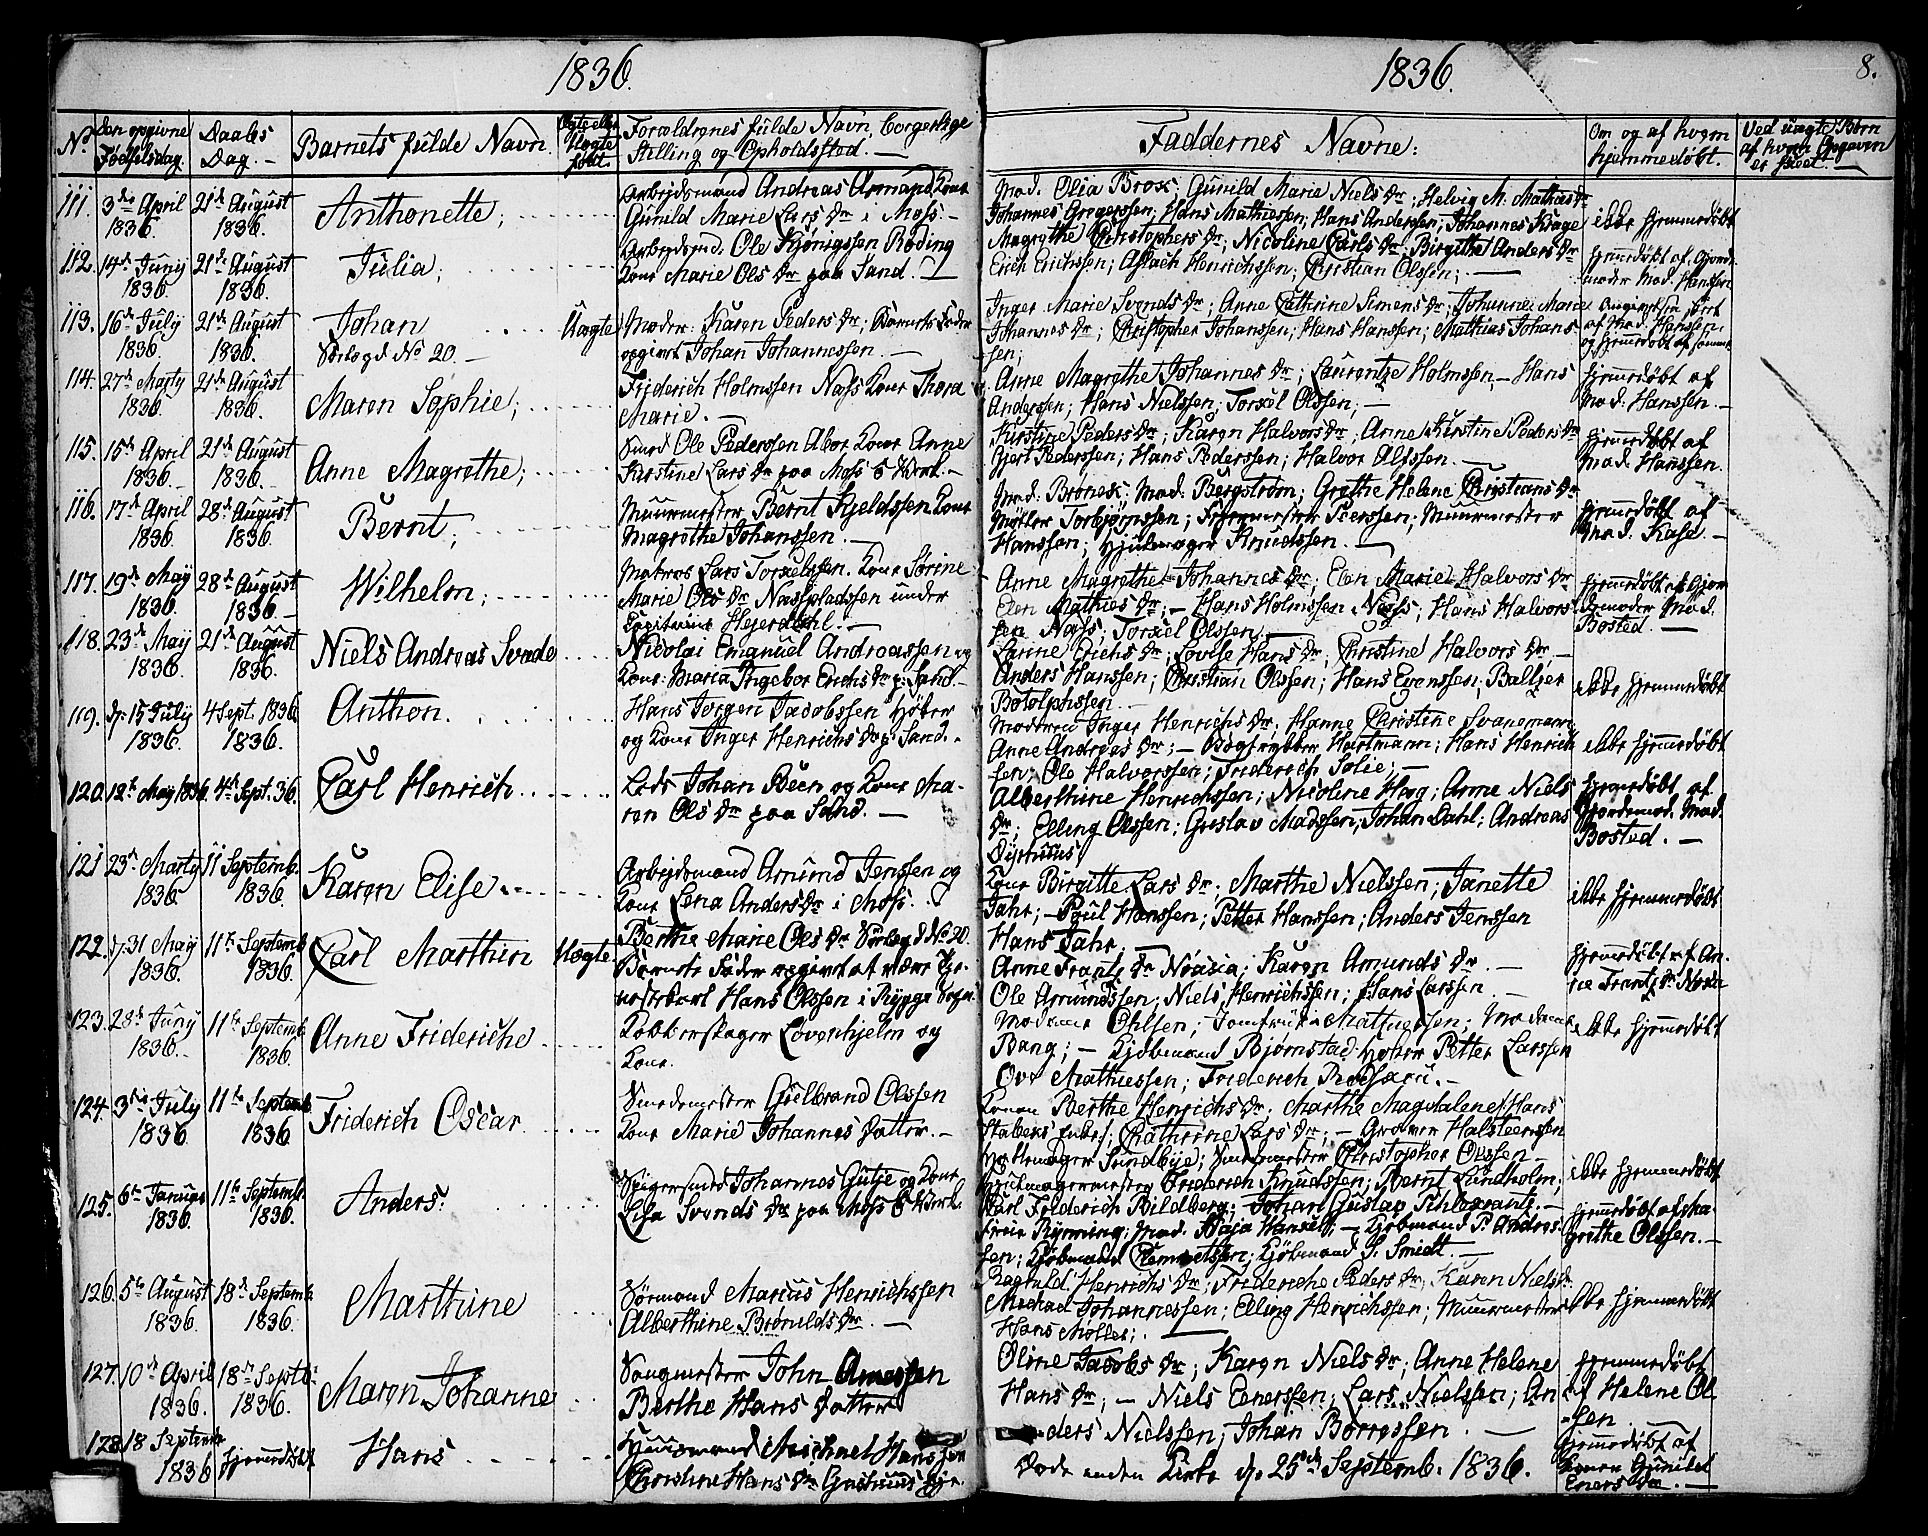 1836.
1836.
8.
No.
Den opgivne Fødselsdag.
Daabs Dag. —
Barnets fulde Navn.
Ægte eller Uægte født.
Forældrenes fulde Navn, borgerlige Stilling og Opholdssted. —
Faddernes Navne:
Om og af hvem hjemmedøbt.
Ved uægte Børn af hvem Opgaven er skeet. —
111. 3die April 1836. 21de August 1836. Anthonette;
Arbejdsmand Andreas Amand Kone
Gunild Marie Lars Dr i Moss. —
Mad. Olia Brose; Gunild Marie Niels Dr; Helvig M. Mathias Dr
Johannes Gregerssen; Hans Mathiesen; Hans Anderssen; Johannes Krage
ikke hjemmedøbt
112. 14de Juny 1836. 21de August 1836. Julia;
Arbejdsmd. Ole Kjønigssen Røding
Kone Marie Ols Dr paa Sand. —
Magrethe Christophers Dr; Nicoline Carls Dr; Birgithe Anders Dr
Erich Erichssen; Aslach Henrichssen; Christian Olssen; —
hjemmedøbt af Gjorde-
moder Mad. Hanssen
113. 16de July 1836. 21de August 1836. Johan
Sørlegd No 20. —
Uægte
Moder: Karen Peders Dr; Barnets Fader
opgivet Johan Johannessen. —
Inger Marie Svends Dr; Anne Cathrine Simens Dr; Johanne Marie
Johannes Dr; Christopher Johanssen; Hans Hanssen; Mathias Johans
sen;
af Mad. Hanssen
og hjemmedøbt af samme
114. 27de Marty 1836. 21de August 1836. Maren Sophie;
Friderich Holmssen Næss Kone Thora
Marie. —
Anne Magrethe Johannes Dr; Laurentze Holmssen, — Hans
Anderssen; Hans Nielssen; Torkel Olssen; —
hjemmedøbt af
Mad. Hanssen. —
115. 15de April 1836. 21de August 1836. Anne Magrethe;
Smed Ole Pederssen Abor Kone Anne
Kirstine Lars Dr paa Moss Værk. —
Kirstine Peders Dr; Karen Halvors Dr; Anne Kirstine Peders Dr
Gjert Pederssen; Hans Pederssen; Halvor Olssen. —
hjemmedøbt af
Mad. Hanssen.
116. 17de April 1836. 28de August 1836. Bernt;
Muurmester Bernt Kjeldssen Kone
Magrethe Johanssen. —
Mad. Bronese; Mad. Bergstrøm; Grethe Helene Christians Dr
Møller Torbjørnssen; Peerssen; Muurmester
Hanssen; Hjulmager Knudssen. —
hjemmedøbt af
Mad. Kase —
117. 19de May 1836. 28de August 1836. Wilhelm;
Matros Lars Torkelssen. Kone Sørine
Marie Ols Dr Næsspladssen under
Capitaine Hejerdahl. —
Anne Magrethe Johannes Dr; Elen Marie Halvors Dr
Elen Mathies Dr; — Hans Holmssen Næss; Hans Halvors
sen Næss; Torkel Olssen;
hjemmedøbt af Gjor-
demoder Mad.
Bosted. —
118. 23de May 1836. 21de August 1836. Niels Andreas Svende
Nicolai Emanuel Andreassen og
Kone: Maria Ingebor Erichs Dr p. Sand
Lanne Erichs Dr; Lovise Hans Dr; Christine Halvors Dr; —
Anders Hanssen; Christian Olssen; Hans Evenssen; Baltzer
Botolphssen. —
ikke hjemmedøbt
119. d: 15 July 1836. 4 Sept. 1836. Anthon.
Hans Jørgen Jacobssen Høker
og Kone Inger Henrichs Dr p: Sand.
Moderen Inger Henrichs Dr; Hanne Christine Svanemann;
Anne Andreas Dr; — Bogtrykker Hartmann; Hans Henrich
sen; Ole Halvorssen; Friderich Solie; —
ikke hjemmedøbt
120. 12te May 1836. 4de Sept. 36. Carl Henrich
Lods Johan Been og Kone Ma-
ren Ols Dr paa Sand. —
Alberthine Henrichssen; Nicoline Høeg; Anne Niels
Dr; Elling Olssen; Gustav Madssen; Johan Dahl; Andreas
hjemmedøbt af
Gjordemod. Mad.
Bosted. —
121. 23de Marty 1836. 11 Septemb. 1836. Karen Elise.
Arbejdsmand Amund Jenssen og
Kone Lena Anders Dr i Moss.
Kone Birgitte Lars Dr; Marthe Nielssen; Janette
Fahr; — Poul Hanssen; Petter Hanssen; Anders Jenssen
Hans Fahr. —
ikke hjemmedøbt
122. d: 31 May 1836. 11te Septemb 1836. Carl Marthin Uægte
Berthe Marie Ols Dr Sørlegd No 20.
Barnets Fader opgivet at være Tje-
nestekarl Hans Olssen i Rygge Sogn.
Anne Frantz Dr Noasia; Karen Amunds Dr. —
Ole Amundssen; Niels Henrichssen; Hans Larssen
hjemmedøbt af An-
ne Frantz Dr
123. 28de Juny 1836. 11te Septemb 1836. Anne Frideriche.
Kobberslager Løvenhjelm og
Kone.
Madame Ohlsen; Jomfrue Mathiessen; Madame
Bang; — Kjøbmand Bjørnstad. Petter Larssen
Ove Mathiessen; Friderich
ikke hjemmedøbt
124. 3die July 1836. 11te Septemb 1836. Friderich Oscar.
Smedemester Gulbrand Olssen
Kone Marie Johannes Datter. —
Konen Berthe Henrichs Dr; Marthe Magdalene Hans
Cathrine Lars Dr; — Halsteenssen
Sundbye; Smedmester Christopher Olssen —
ikke hjemmedøbt
125. 6te Januar 1836. 11te Septemb. 1836. Anders.
Spigersmed Johannes Gutze og Kone
Lisa Svends Dr paa Moss Værk.
Hjulmagermester Friderich Knudssen; Bernt Lundholm;
Carl Friderich Bildberg; Johan Gustav
Rynning; Mad. Hansen; — Kjøbmand P. Andres-
sen; Kjøbmand Clemmetsen; Kjøbmand S. Smidt. —
hjemmedøbt af Ma-
grethe Olssen. —
126. 5te August 1836. 18de Septemb 1836. Marthine
Sømand Marcus Henrichssen
Alberthine Brønilds Dr. —
Ragnild Henrichs Dr; Frideriche Peders Dr; Karen Niels Dr
Michael Johannessen; Elling Henrichssen; Muurmester
Hans Møller; —
ikke hjemmedøbt
127. 10de April 1836. 18de Septb: 1836. Maren Johanne
Saugmester John
Berthe Hans Datter
Oline Jacobs Dr; Karen Niels Dr; Anne Helene
Hans Dr; — Niels Enerssen; Lars Nielssen; An
ders Nielssen; Johan Børressen. —
hjemmedøbt
af Helene Ol
sen
128. 18 Septemb 1836 hjemmedøbt Hans
Huusmand Michael Hanssen
Christine Hans Dr
Døde uden Kirke d. 25de Septemb. 1836.
hjemmedøbt af
Konen Gunild
Eners Dr. —